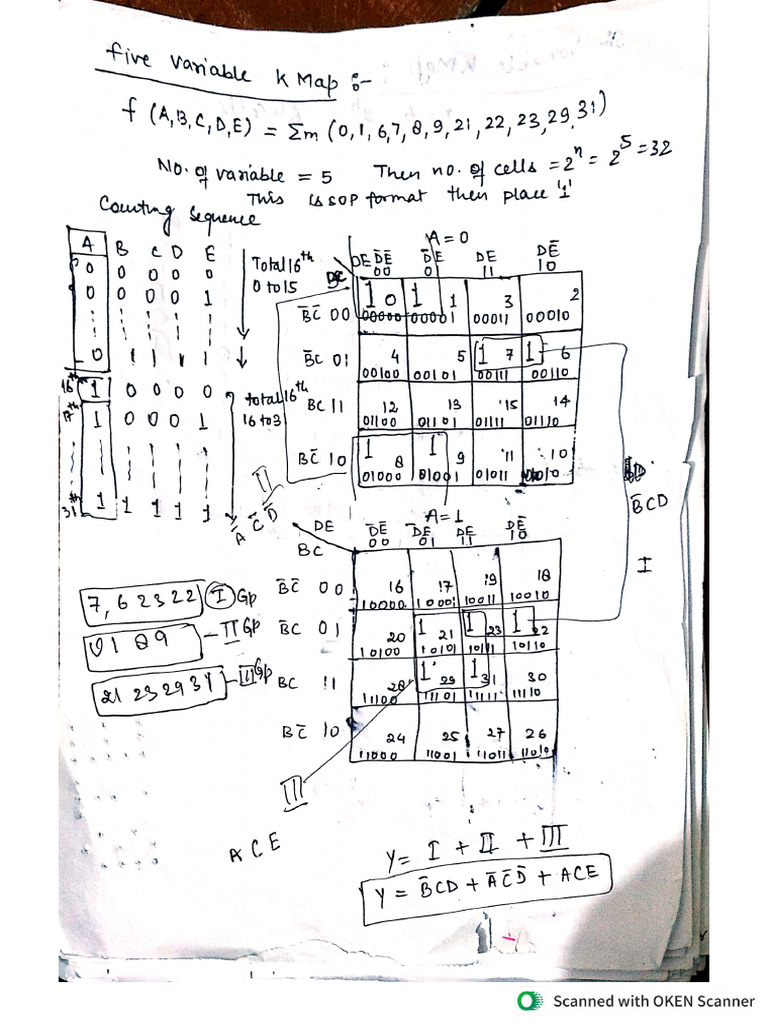 five variable k Map :-
f (A,B,C,D,E) = Σm (0,1,6,7,8,9,21,22,23,29,31)
No. of variable = 5 Then no. of cells = 2^n = 2^5 = 32
This is SOP format then place '1'
Counting sequence
A B C D E
0 0 0 0 0
0 0 0 0 1
0 1 1 1 1
16th 1 0 0 0 0
17th 1 0 0 0 1
31th 1 1 1 1 1
Total 16th
0 to 15
total 16th
16 to 3
A=0
DE D̅E̅ D̅E DE DE̅
00 01 11 10
B̅C̅ 00
1 0 1 1 3 2
00000 00001 00011 00010
B̅C 01
4 5 1 7 1 6
00100 00101 00111 00110
BC 11
12 13 15 14
01100 01101 01111 01110
BC̅ 10
1 8 1 9 11 10
01000 01001 01011 01010
II
A̅ C̅ D̅
B̅CD
I
A=1
DE D̅E̅ D̅E DE DE̅
00 01 11 10
BC
B̅C̅ 00
16 17 19 18
10000 10001 10011 10010
B̅C 01
20 1 21 1 23 1 22
10100 10101 10111 10110
BC 11
28 1 29 1 31 30
11100 11101 11111 11110
BC̅ 10
24 25 27 26
11000 11001 11011 11010
7, 6 23 22 I Gp
01 89 - II Gp
21 23 29 31 - III Gp
III
A C E
Y = I + II + III
Y = B̅CD + A̅C̅D̅ + ACE
Scanned with OKEN Scanner